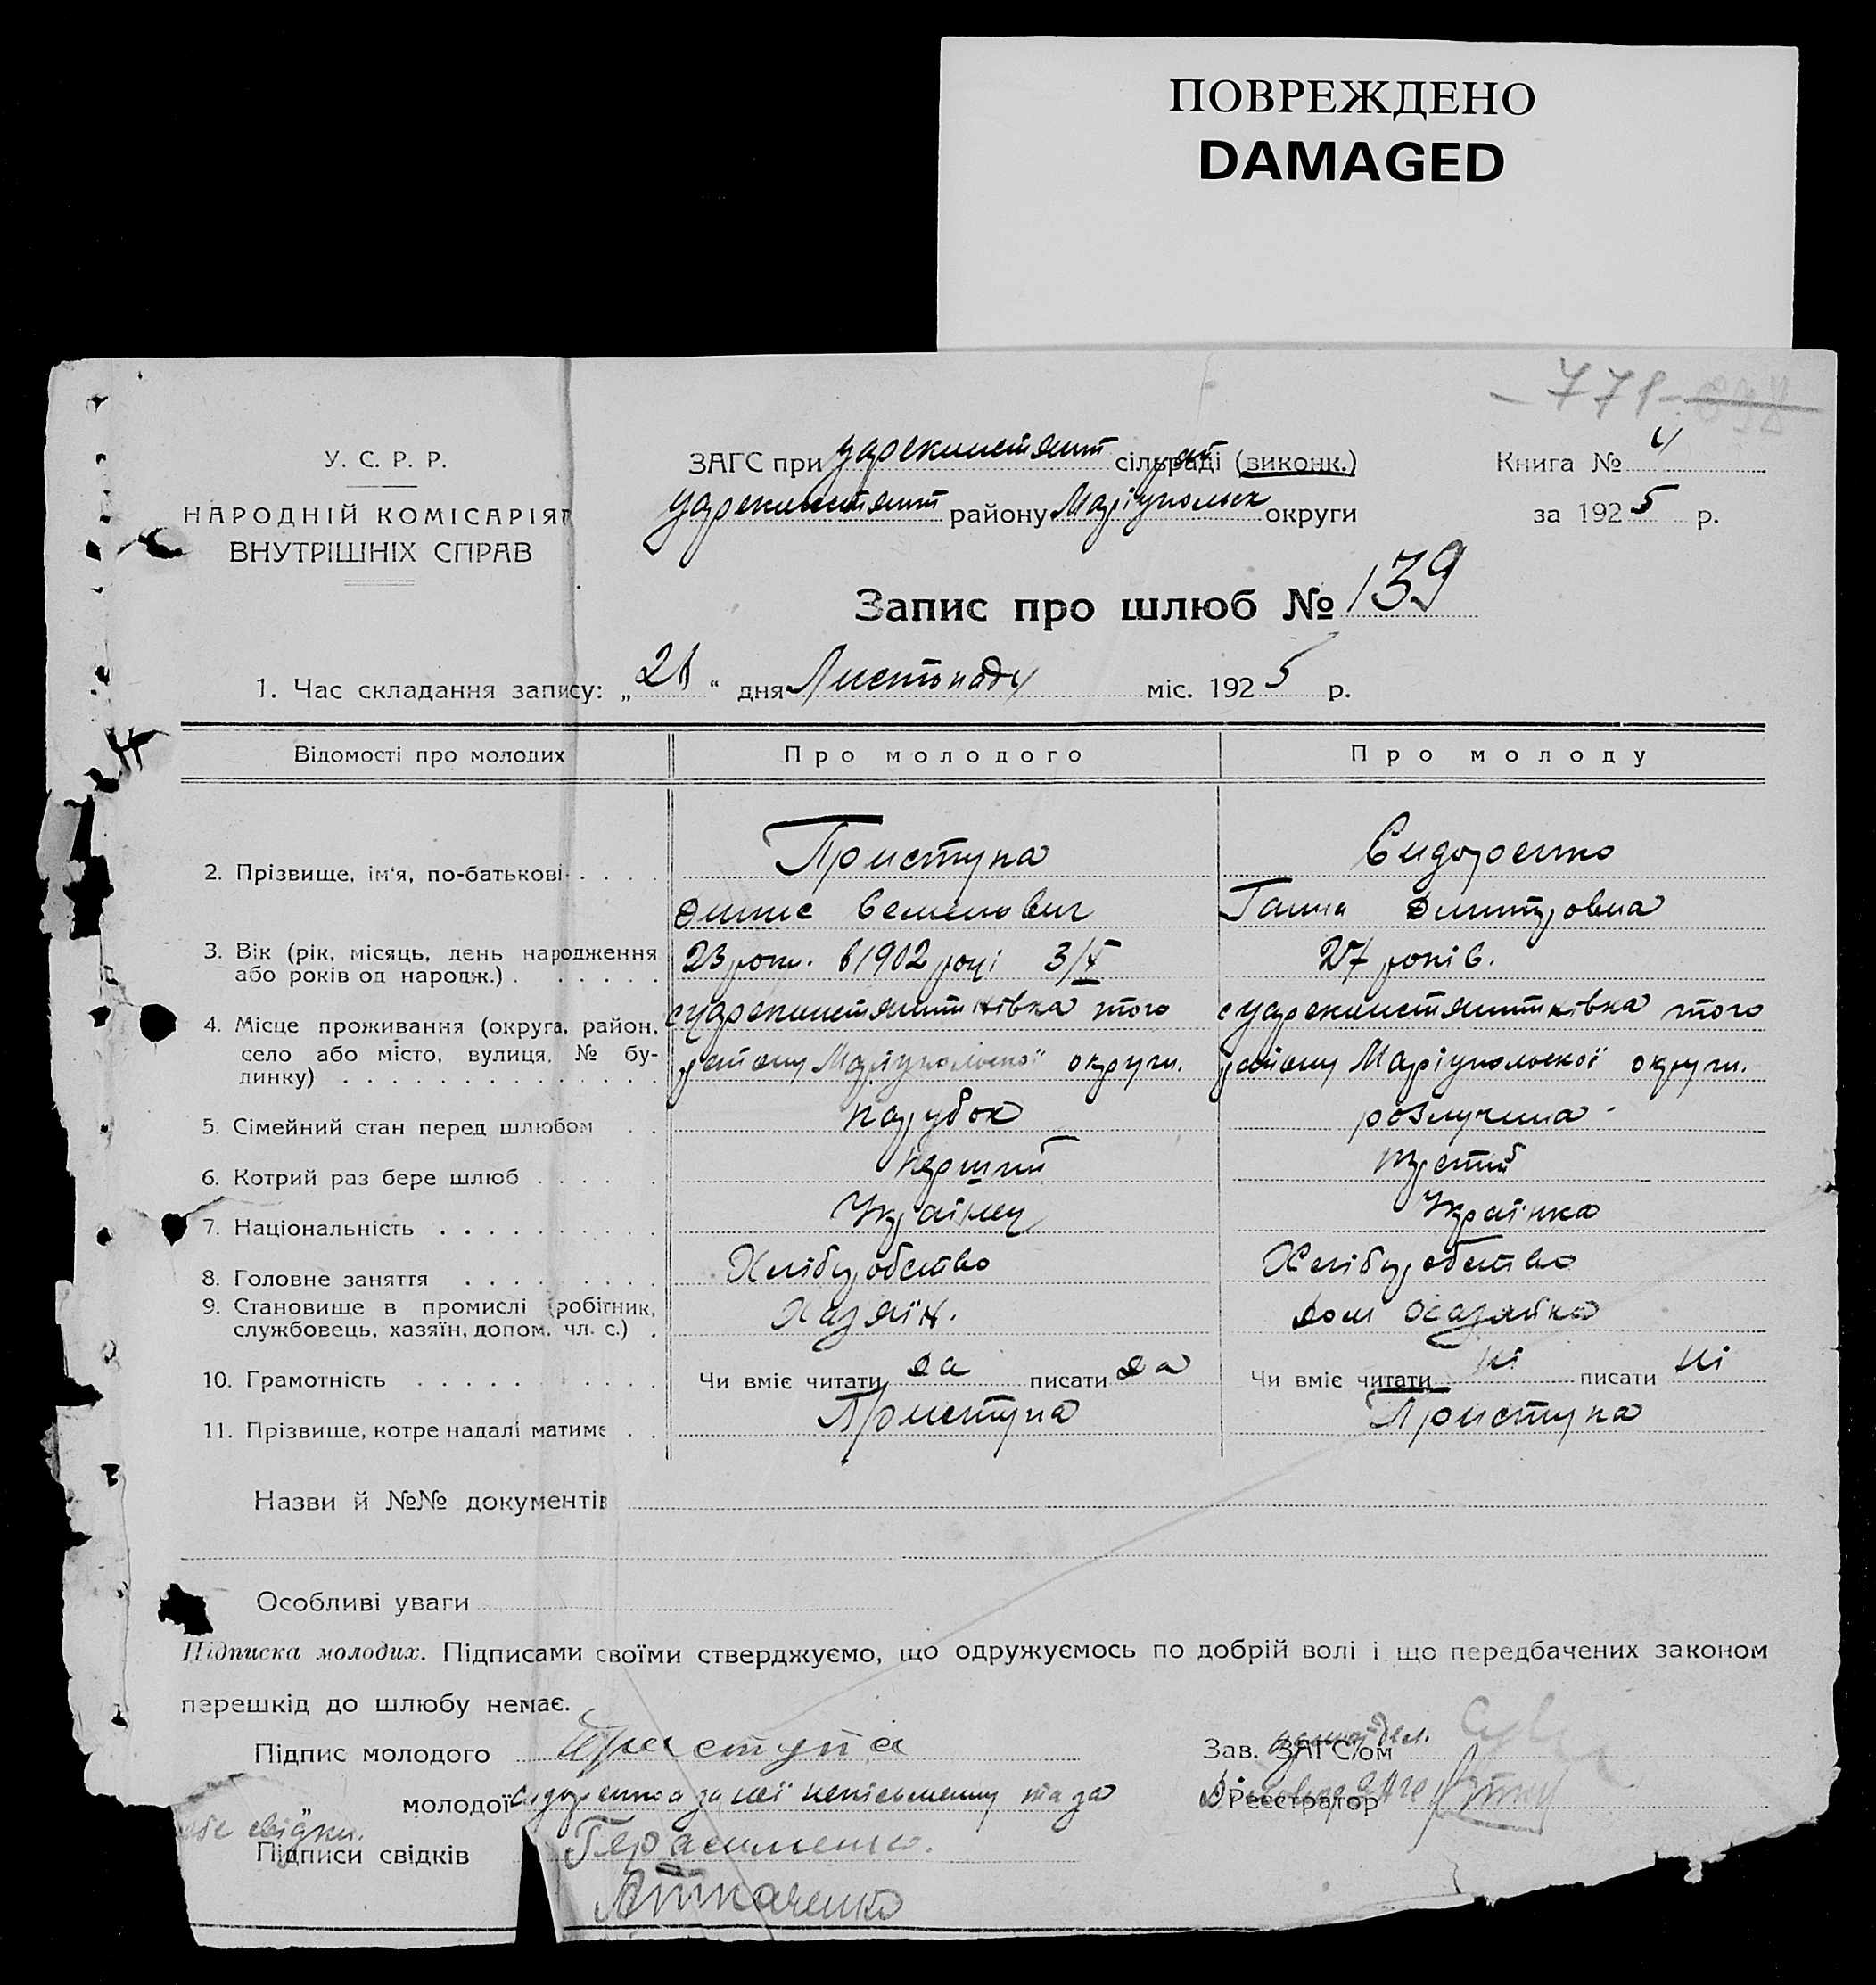 ПОВРЕЖДЕНО
DAMAGED
771
У. С. Р. Р.
НАРОДНІЙ КОМІСАРІЯТ
ВНУТРІШНІХ СПРАВ
ЗАГС при сільраді (виконк.)
району Маріупольск округи
Книга №
за 1925 р.
Запис про шлюб № 139
1. Час складання запису: „ “ дня Листопаду міс. 1925 р.
Відомості про молодих Про молодого Про молоду
2. Прізвище, ім'я, по-батькові Приступа Сидоренко
Семенович Ганна Дмитровна
3. Вік (рік, місяць, день народження 23 роки. в 1902 році 27 років.
або років од народж.)
4. Місце проживання (округа, район, того того
село або місто, вулиця, № бу- району Маріупольської округи. району Маріупольскої округи.
динку)
5. Сімейний стан перед шлюбом парубок розлучена
6. Котрий раз бере шлюб перший третий
7. Національність Українец Українка
8. Головне заняття Хліборобство Хліборобство
9. Становище в промислі (робітник,
службовець, хазяїн, допом. чл. с.) Хазяїн. дом хазяйка
10. Грамотність Чи вміє читати да писати да Чи вміє читати ні писати ні
11. Прізвище, котре надалі матиме Приступа Приступа
Назви й №№ документів
Особливі уваги
Підписка молодих. Підписами своїми стверджуємо, що одружуємось по добрій волі і що передбачених законом
перешкід до шлюбу немає.
Підпис молодого Приступа Зав. ЗАГС'ом
„ молодої Сидоренко а за неї неписьменну та за Реєстратор
себе свідки.
Підписи свідків Герасименко.
Ткаченко